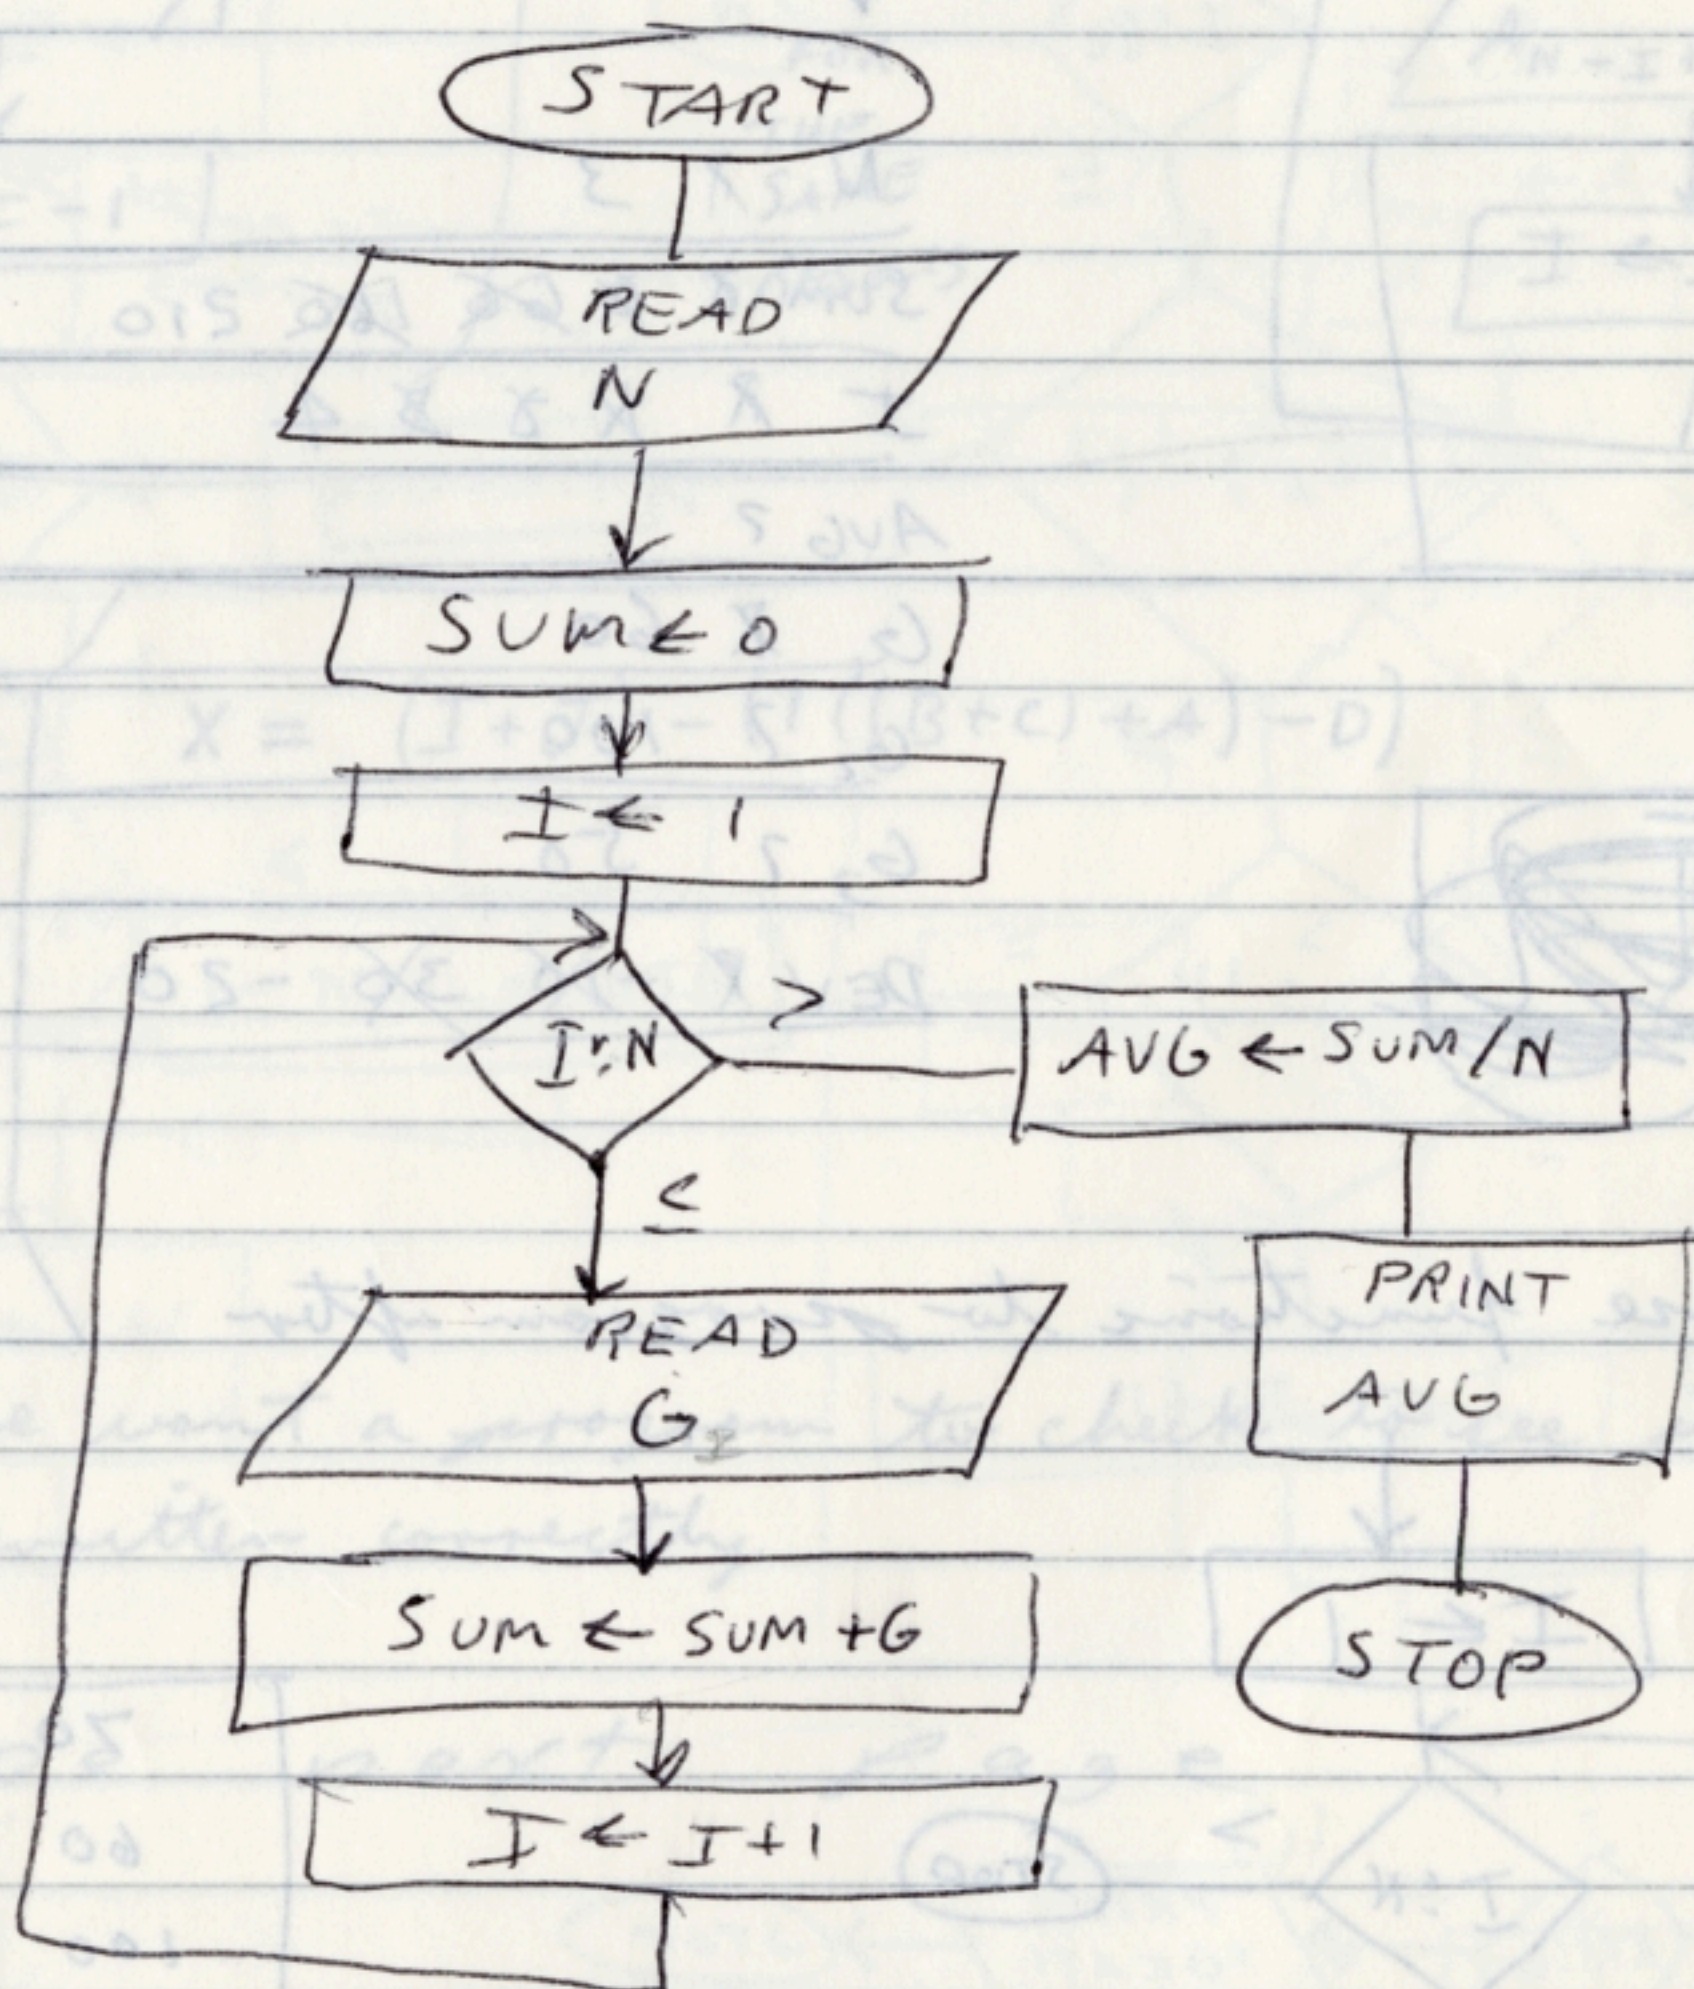 START
READ
N
SUM ← 0
I ← 1
I : N
>
AVG ← SUM / N
≤
PRINT
AVG
READ
G I
SUM ← SUM + G
STOP
I ← I + 1